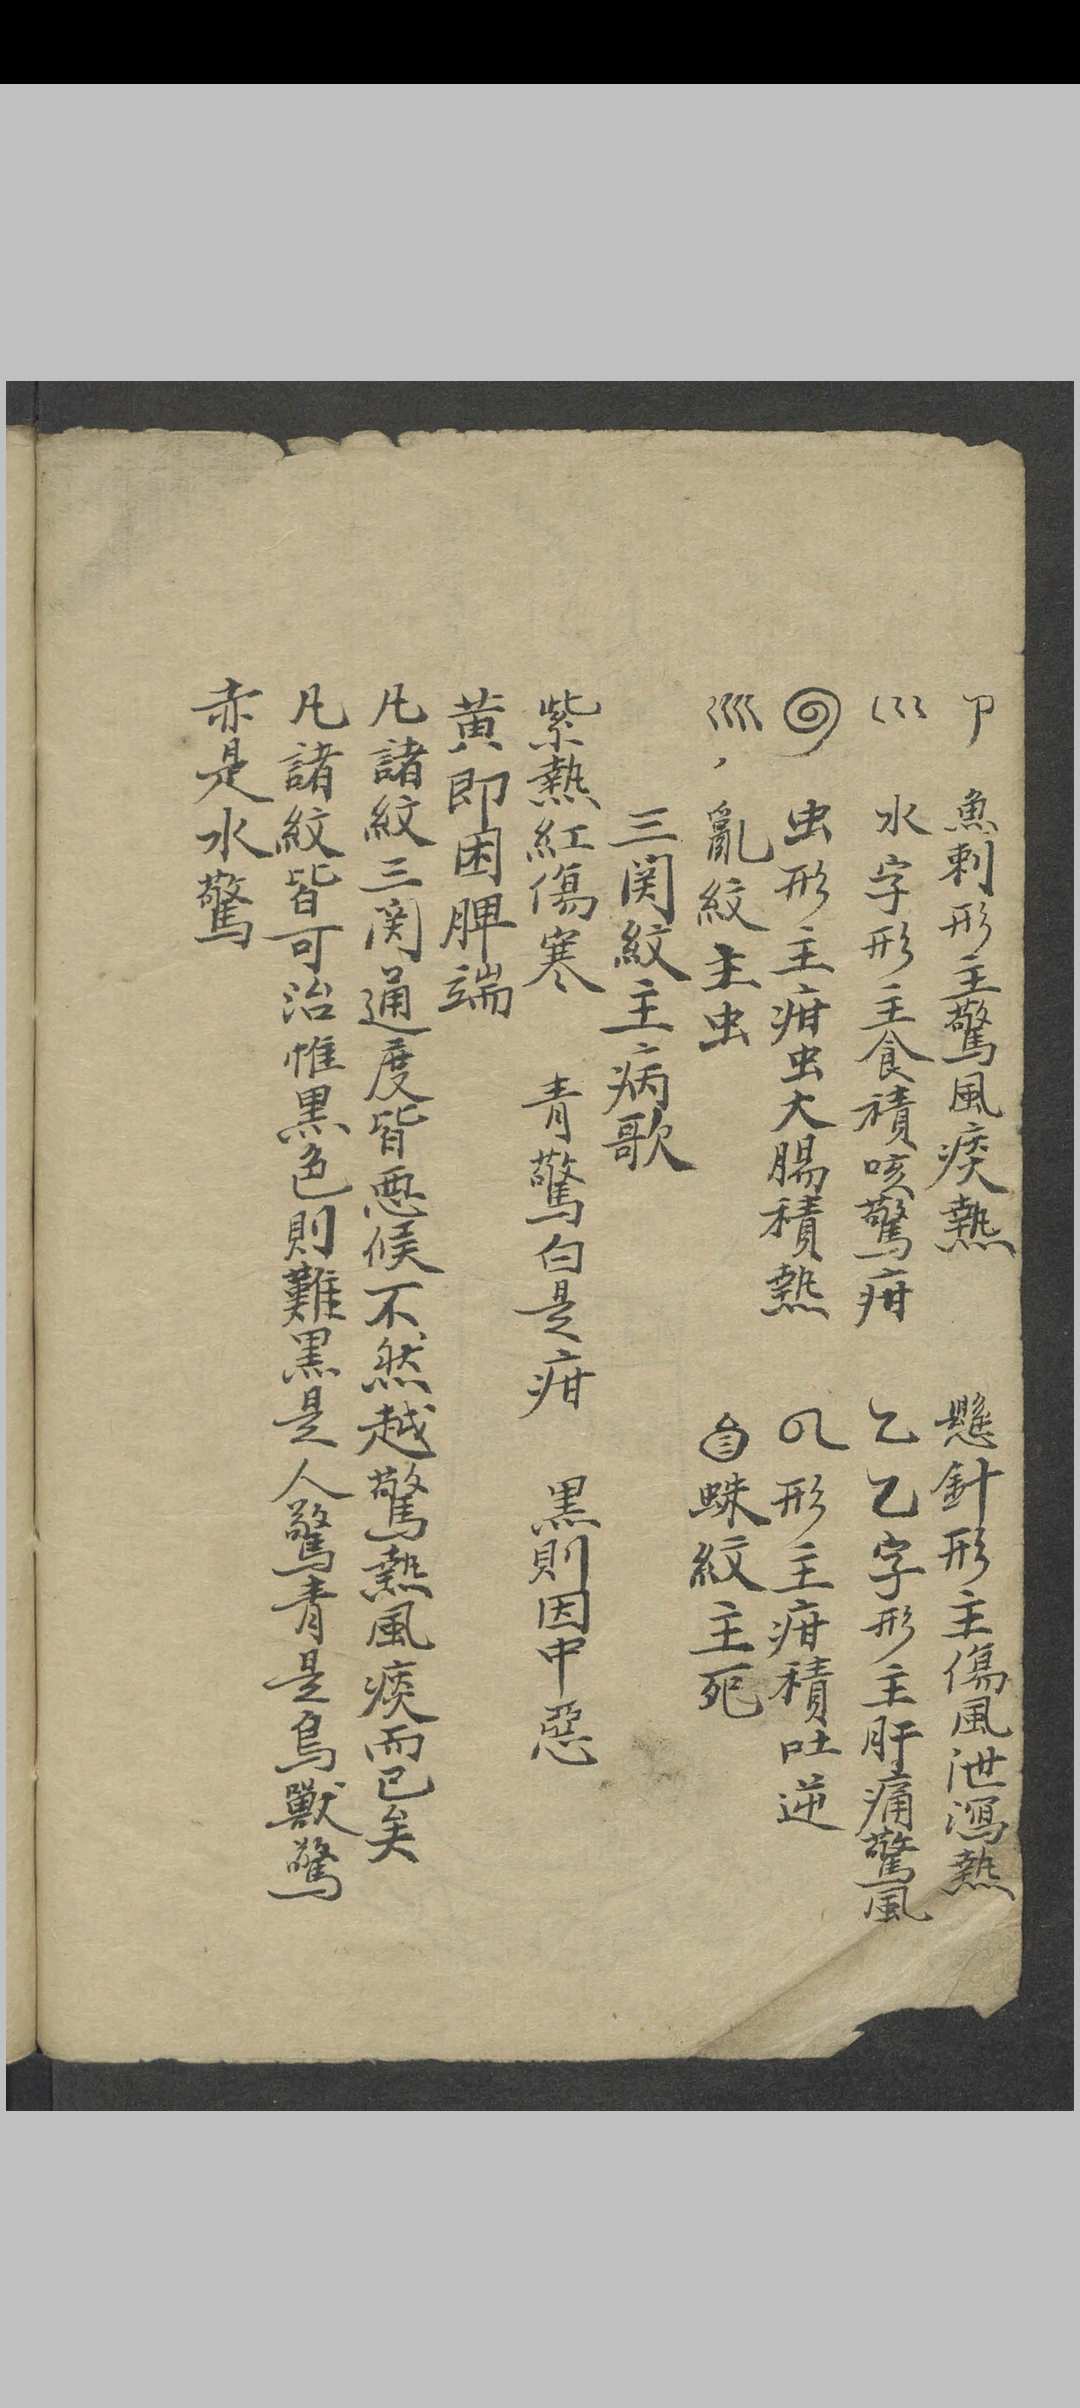 魚刺形主驚風痰熱　懸針形主傷風泄瀉熱
水字形主食積咳驚疳　乙字形主肝痛驚風
虫形主疳虫大腸積熱　形主疳積吐逆
亂紋主虫　蛛紋主死
三関紋主病歌
紫熱紅傷寒　青驚白是疳　黒則因中惡
黄即困脾端
凡諸紋三関通度皆悪候不然越驚熱風痰而已矣
凡諸紋皆可治惟黒色則難黒是人驚青是烏獸驚
赤是水驚